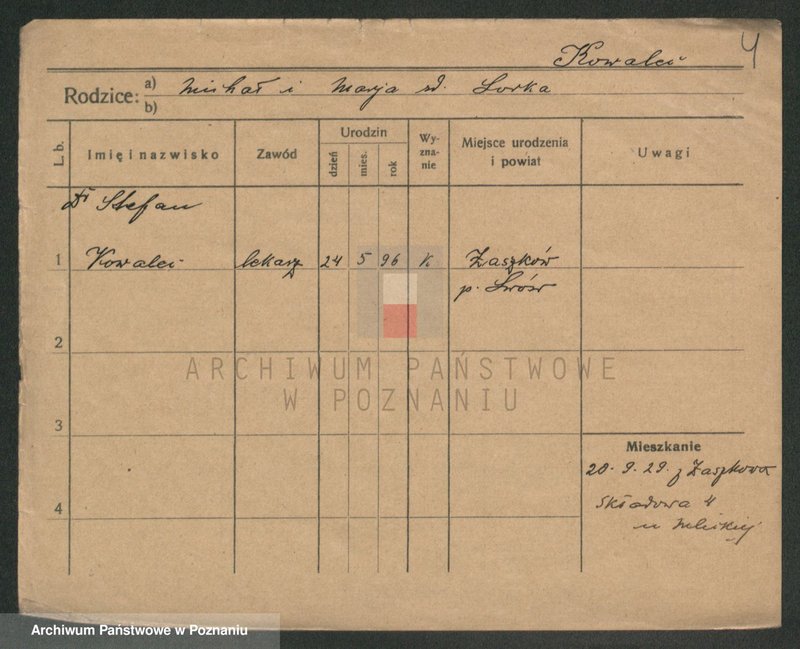 4
Kowalcu
Rodzice: a) Michał i Marja zd. Lorka
b)
L. b.
Imię i nazwisko
Zawód
Urodzin
dzień
mies.
rok
Wy-
zna-
nie
Miejsce urodzenia
i powiat
Uwagi
Dr Stefan
1 Kowalcu lekarz 24 5 96 k Zaszków
p. Lwów
2
3
4
Mieszkanie
20. 9. 29. z Zaszkowa
Składowa 4
u
ARCHIWUM PAŃSTWOWE
W POZNANIU
Archiwum Państwowe w Poznaniu